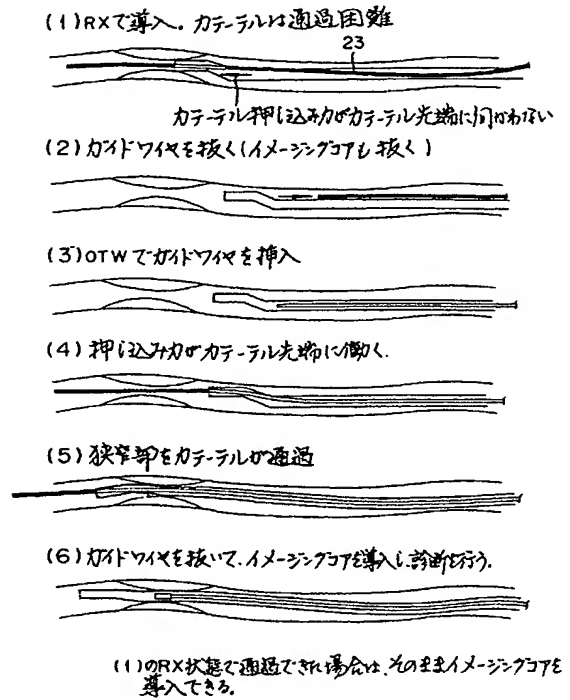 (1)RXで導入。カテーテルは通過困難
23
カテーテル押し込み力がカテーテル先端に向かわない
(2)ガイドワイヤを抜く(イメージングコアも抜く)
(3)OTWでガイドワイヤを挿入
(4)押し込み力がカテーテル先端に働く.
(5)狭窄部をカテーテルが通過
(6)ガイドワイヤを抜いて、イメージングコアを導入し診断を行う.
(1)のRX状態で通過できれば場合は、そのままイメージングコアを
導入できる。